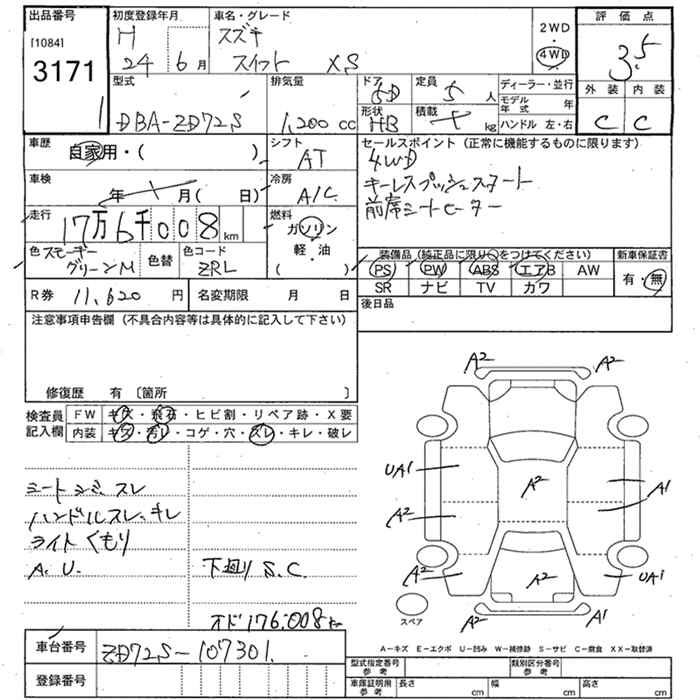 出品番号
[1084]
3171
1
初度登録年月
H
24 6月
車名・グレード
スズキ
スイフト XS
2WD
・
4WD
評価点
3.5
外装 内装
C C
型式
DBA-ZD72S
排気量
1,200 cc
ドア
5D
形状
HB
定員
5人
積載
kg
ディーラー・並行
モデル年式 年
ハンドル 左・右
車歴
自家用・( )
シフト
AT
車検
年 月( 日)
冷房
A/C
走行
17万6千008km
燃料
ガソリン
軽・油
( )
色 スモーキーグリーンM
色替
色コード
ZRL
R券 11,620 円
名変期限 月 日
セールスポイント(正常に機能するものに限ります)
4WD
キーレスプッシュスタート
前席シートヒーター
装備品(純正品に限り○をつけてください)
PS PW ABS エアB AW
SR ナビ TV カワ
新車保証書
有・無
後日品
注意事項申告欄(不具合内容等は具体的に記入して下さい)
修復歴 有〔箇所 〕
検査員記入欄
FW キズ・飛石・ヒビ割・リペア跡・X要
内装 キズ・汚レ・コゲ・穴・スレ・キレ・破レ
シートシミ、スレ
ハンドルスレ、キレ
ライトくもり
A.U. 下廻りS.C.
オド176,008km
A2 A2
UA1
A2
A2
A1
A2 UA1
A2
A2 A1
スペア
車台番号
ZD72S-107301
登録番号
A-キズ E-エクボ U-凹み W-補修跡 S-サビ C-腐食 XX-取替済
型式指定番号
参考
類別区分番号
参考
車庫証明用
参考
長さ cm
幅 cm
高さ cm